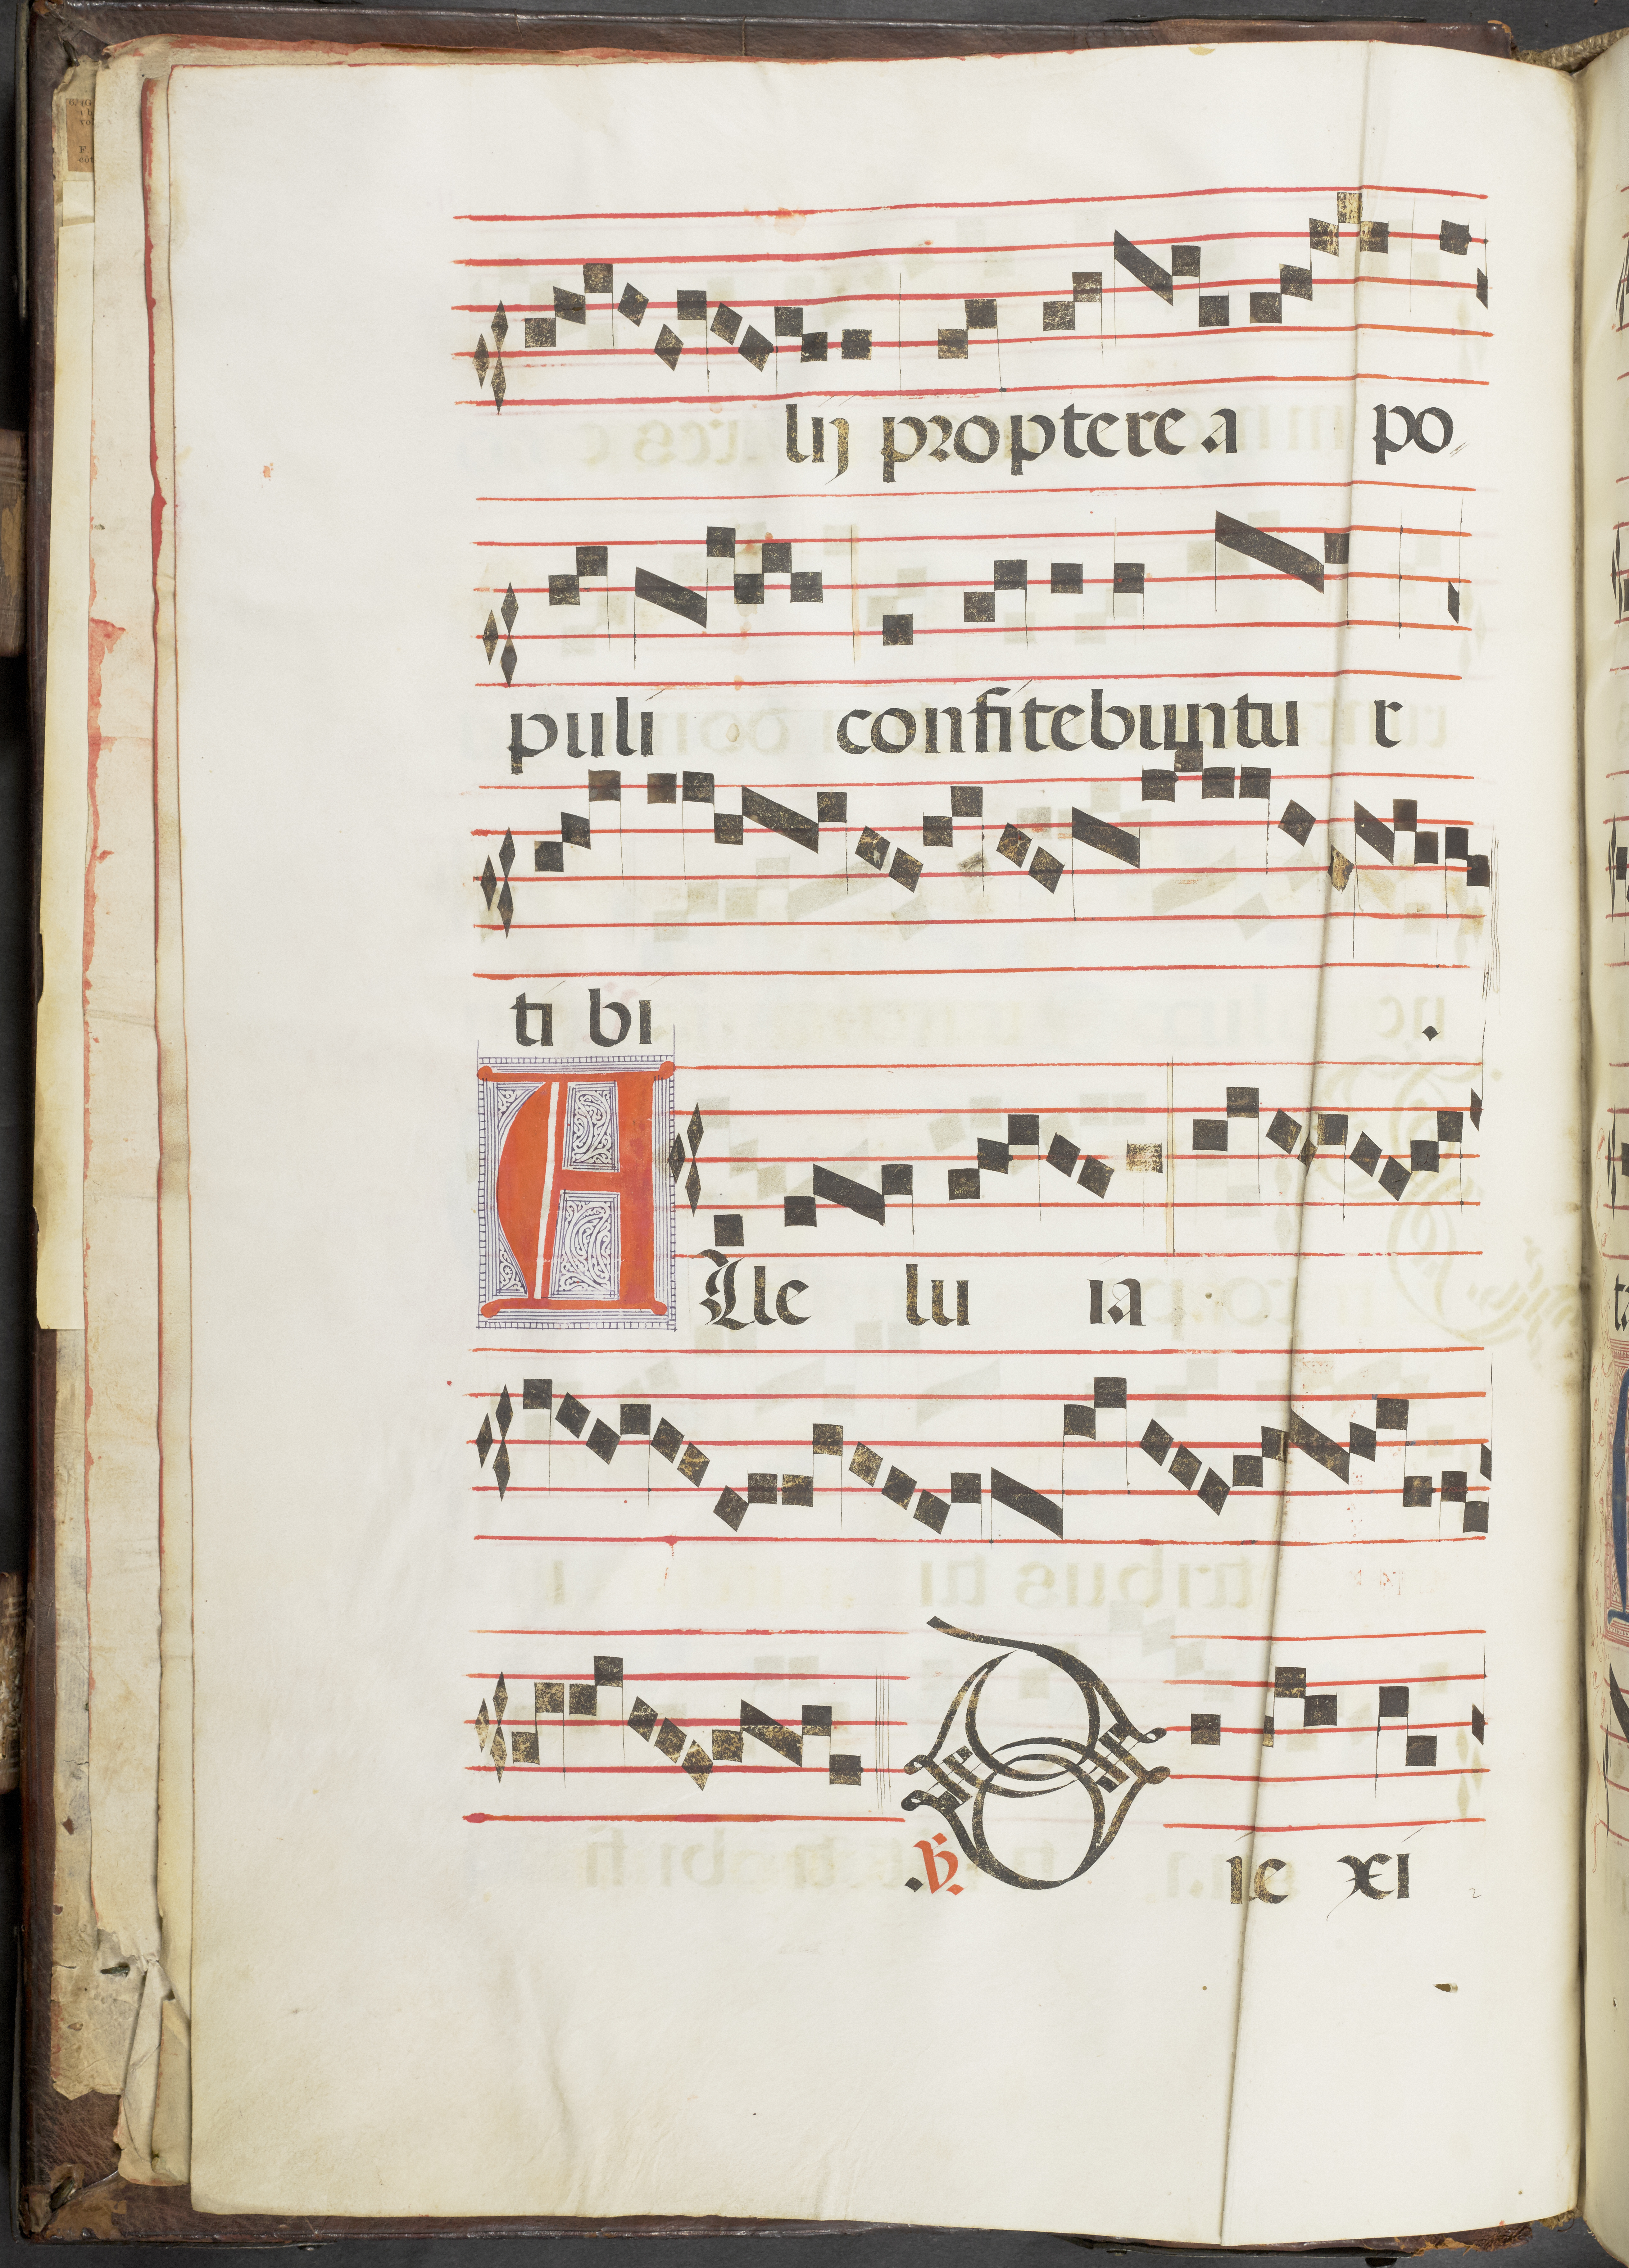 lij proptere a po
puli confitebuntu r
ti bi .
Alle lu ia
.V. D ie xi